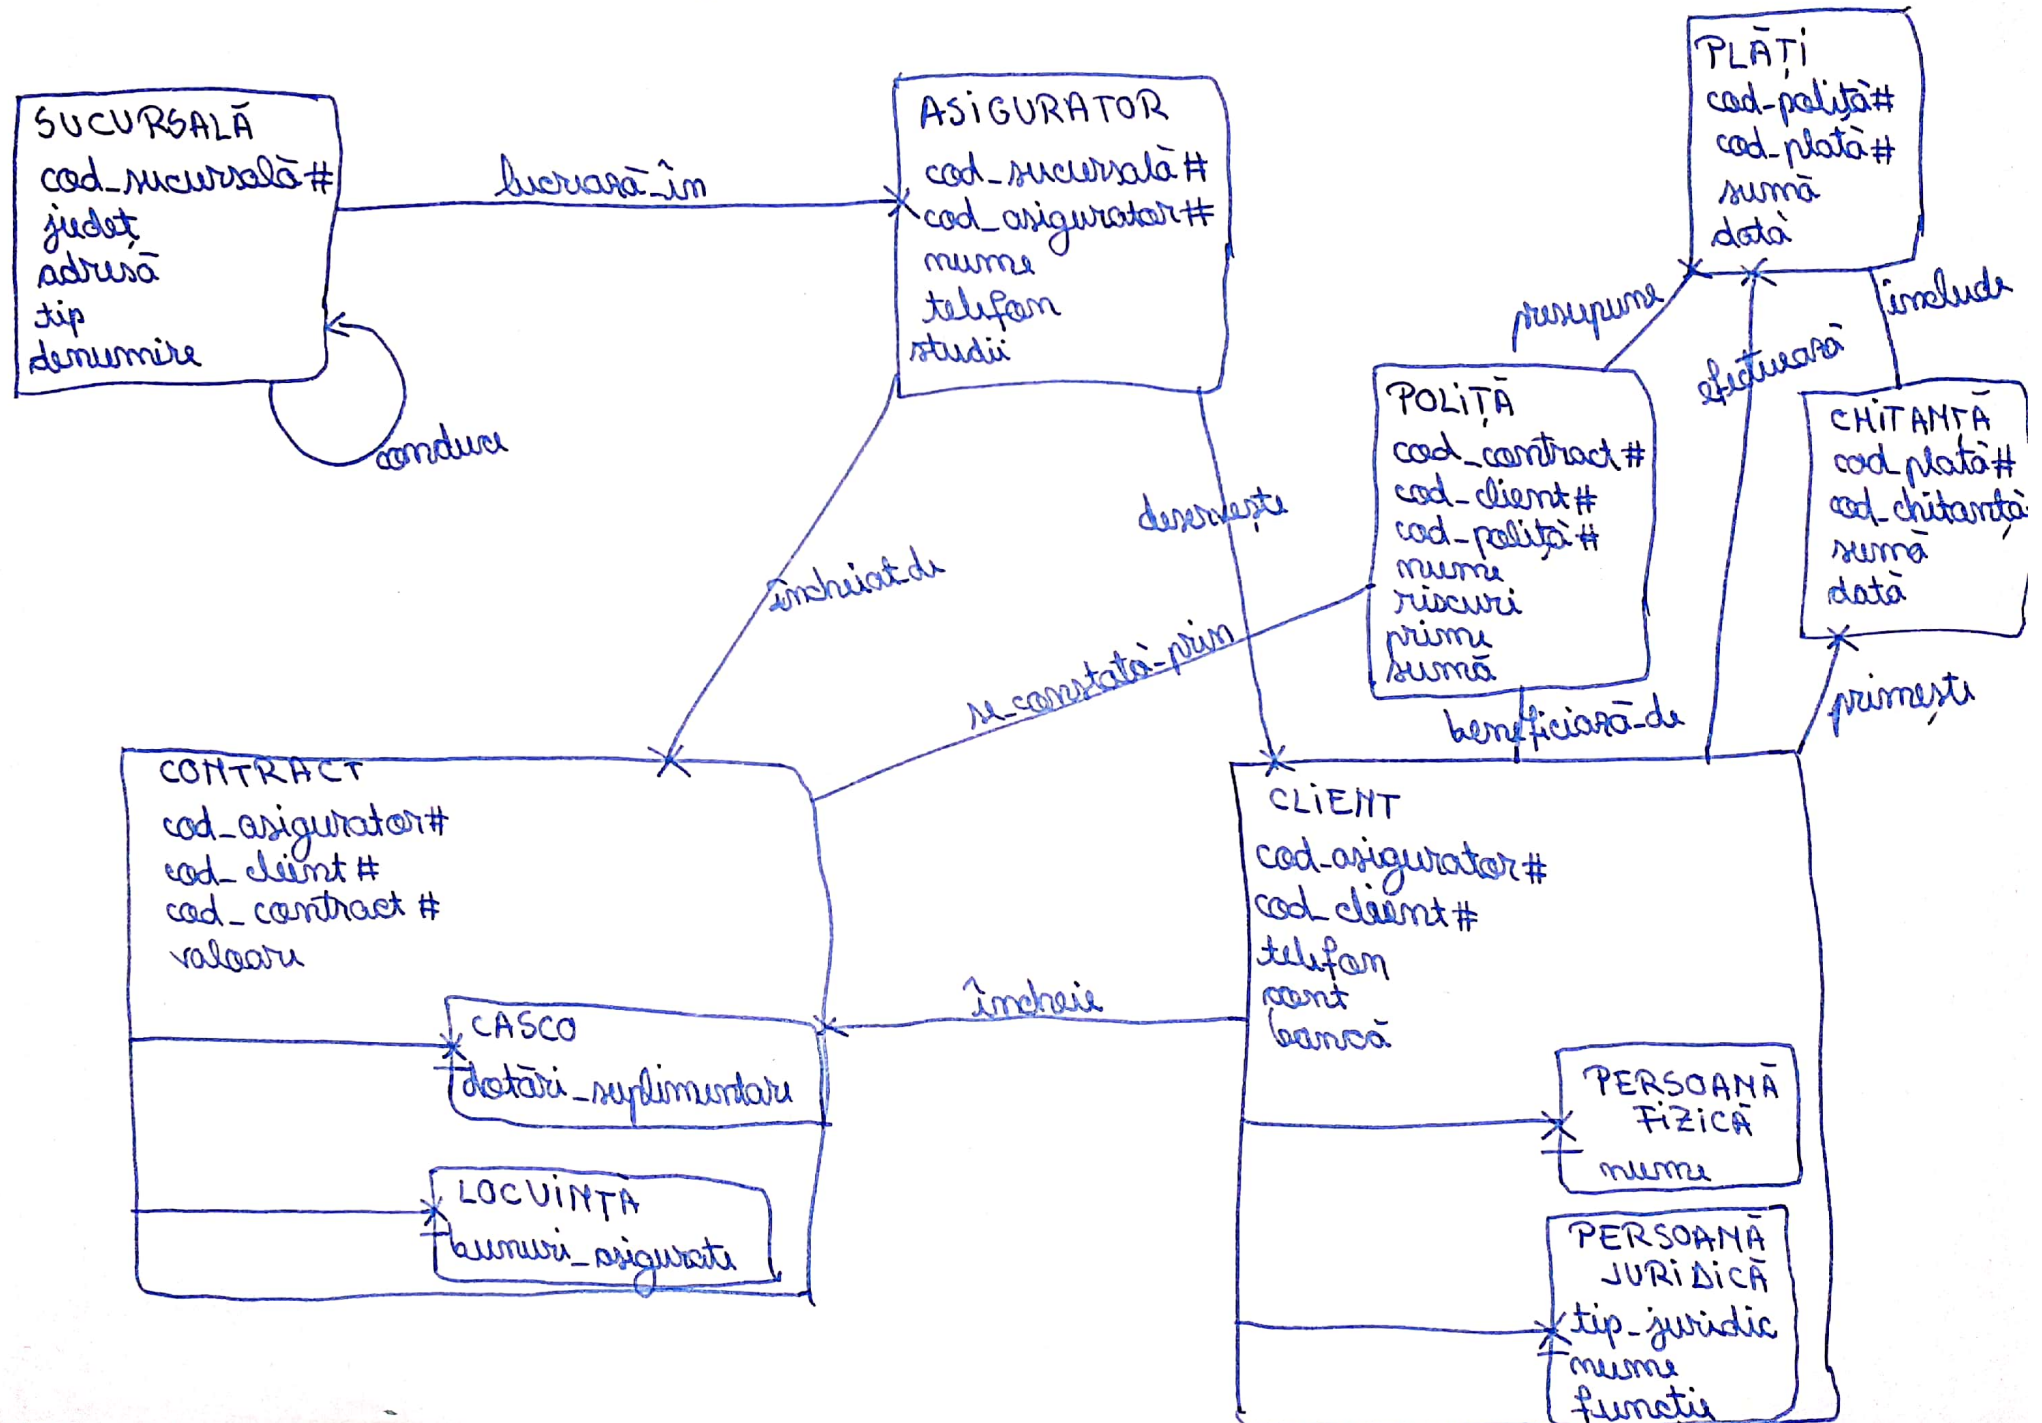 SUCURSALĂ
cod_sucursală#
județ
adresă
tip
denumire
conduce
lucrează_în
ASIGURATOR
cod_sucursală#
cod_asigurator#
nume
telefon
studii
PLĂȚI
cod_poliță#
cod_plată#
sumă
dată
presupune
efectuează
include
POLIȚĂ
cod_contract#
cod_client#
cod_poliță#
nume
riscuri
prime
sumă
CHITANȚĂ
cod_plată#
cod_chitanță
sumă
dată
încheiat_de
deservește
se_constată_prin
beneficiază_de
primește
CONTRACT
cod_asigurator#
cod_client#
cod_contract#
valoare
CASCO
dotări_suplimentare
LOCUINȚA
bunuri_asigurate
încheie
CLIENT
cod_asigurator#
cod_client#
telefon
cont
bancă
PERSOANĂ
FIZICĂ
nume
PERSOANĂ
JURIDICĂ
tip_juridic
nume
funcție